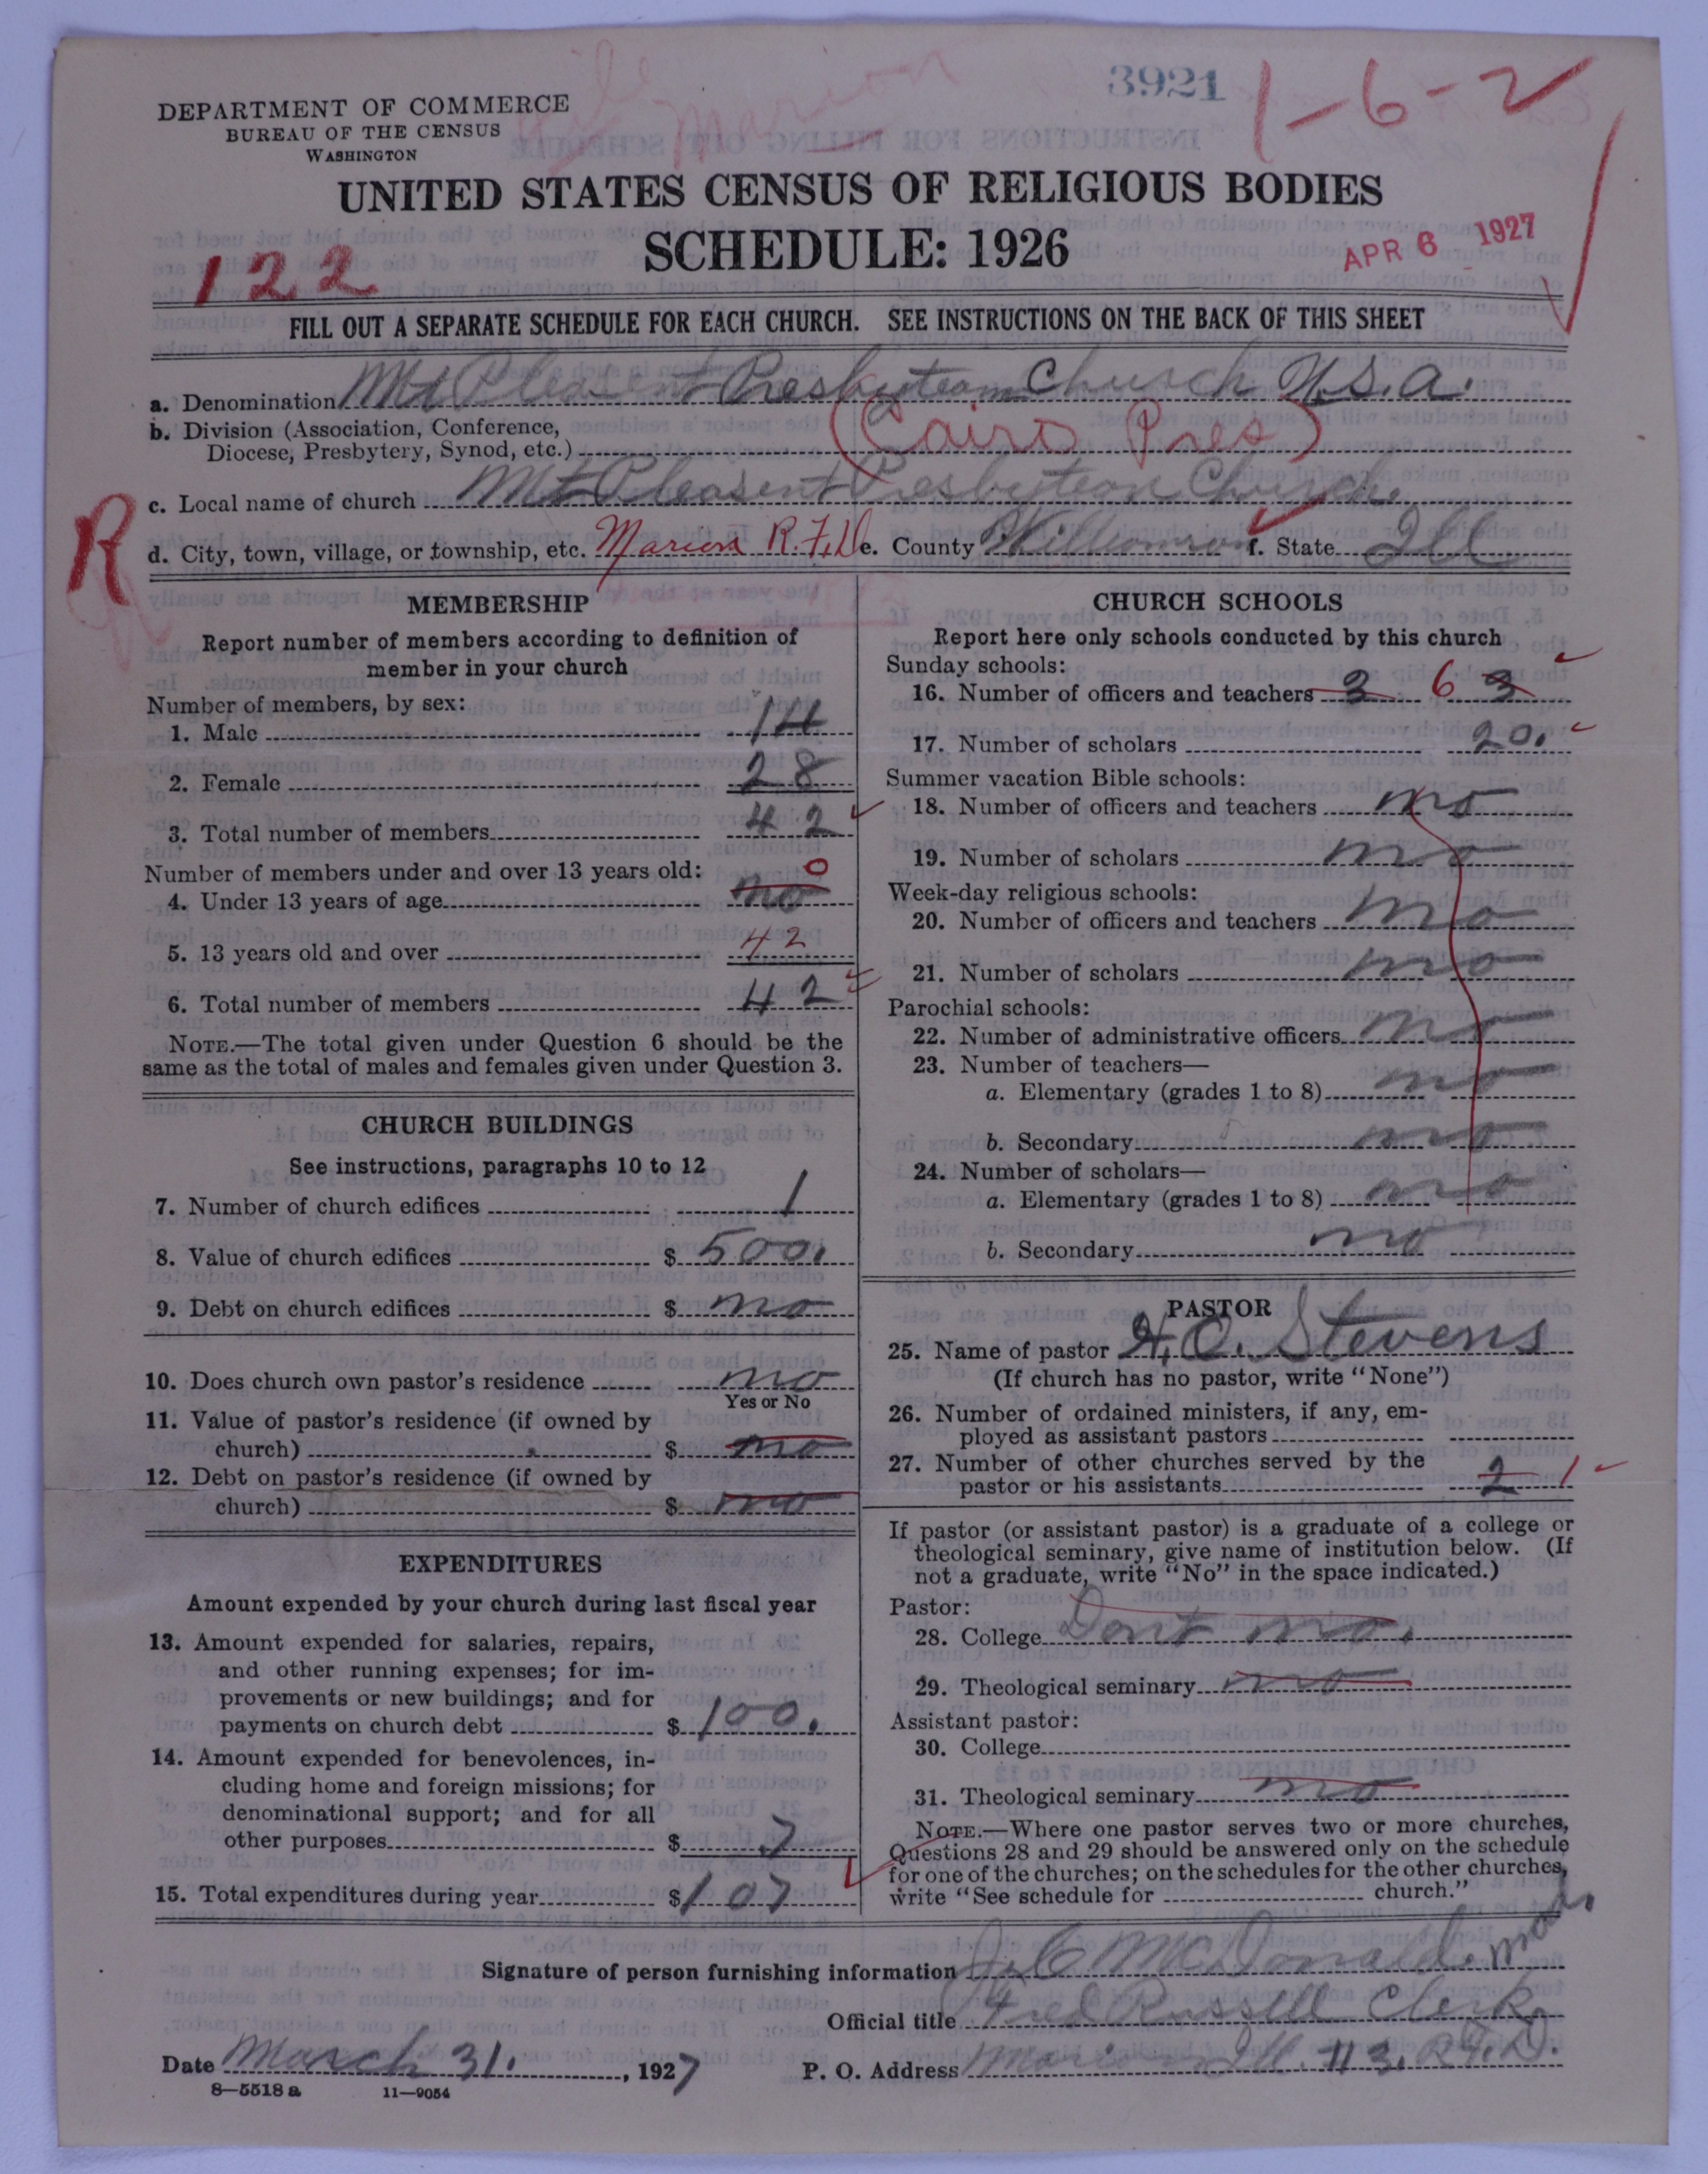 3921
1-6-2
DEPARTMENT OF COMMERCE
BUREAU OF THE CENSUS
WASHINGTON
UNITED STATES CENSUS OF RELIGIOUS BODIES
SCHEDULE: 1926
APR 6 1927
122
FILL OUT A SEPARATE SCHEDULE FOR EACH CHURCH. SEE INSTRUCTIONS ON THE BACK OF THIS SHEET
a. Denomination Mt Pleasent Presbyteam Church U.S.a.
b. Division (Association, Conference,
Diocese, Presbytery, Synod, etc.) (Cairo Pres)
c. Local name of church Mt Pleasent Presbyteon Church.
R
d. City, town, village, or township, etc. Marion R.F.D e. County Williamson f. State Ill
MEMBERSHIP
Report number of members according to definition of
member in your church
Number of members, by sex:
1. Male 14
2. Female 28
3. Total number of members 42
Number of members under and over 13 years old:
4. Under 13 years of age no 0
5. 13 years old and over 42
6. Total number of members 42
NOTE.—The total given under Question 6 should be the
same as the total of males and females given under Question 3.
CHURCH BUILDINGS
See instructions, paragraphs 10 to 12
7. Number of church edifices 1
8. Value of church edifices $ 500.
9. Debt on church edifices $ no
10. Does church own pastor's residence no
Yes or No
11. Value of pastor's residence (if owned by
church) $ no
12. Debt on pastor's residence (if owned by
church) $ no
EXPENDITURES
Amount expended by your church during last fiscal year
13. Amount expended for salaries, repairs,
and other running expenses; for im-
provements or new buildings; and for
payments on church debt $ 100.
14. Amount expended for benevolences, in-
cluding home and foreign missions; for
denominational support; and for all
other purposes $ 7
15. Total expenditures during year $ 107
CHURCH SCHOOLS
Report here only schools conducted by this church
Sunday schools:
16. Number of officers and teachers 3 6 3
17. Number of scholars 20.
Summer vacation Bible schools:
18. Number of officers and teachers no
19. Number of scholars no
Week-day religious schools:
20. Number of officers and teachers no
21. Number of scholars no
Parochial schools:
22. Number of administrative officers no
23. Number of teachers—
a. Elementary (grades 1 to 8) no
b. Secondary no
24. Number of scholars—
a. Elementary (grades 1 to 8) no
b. Secondary no
PASTOR
25. Name of pastor H. O. Stevens
(If church has no pastor, write "None")
26. Number of ordained ministers, if any, em-
ployed as assistant pastors
27. Number of other churches served by the
pastor or his assistants 2 1
If pastor (or assistant pastor) is a graduate of a college or
theological seminary, give name of institution below. (If
not a graduate, write "No" in the space indicated.)
Pastor:
28. College Dont no.
29. Theological seminary no
Assistant pastor:
30. College
31. Theological seminary no
NOTE.—Where one pastor serves two or more churches,
Questions 28 and 29 should be answered only on the schedule
for one of the churches; on the schedules for the other churches,
write "See schedule for church."
Signature of person furnishing information J. C McDonald.
Official title Fred Russell Clerk.
Date March 31. , 1927 P. O. Address Marion Ill. #3. R.F.D.
8—5518 a 11—9054